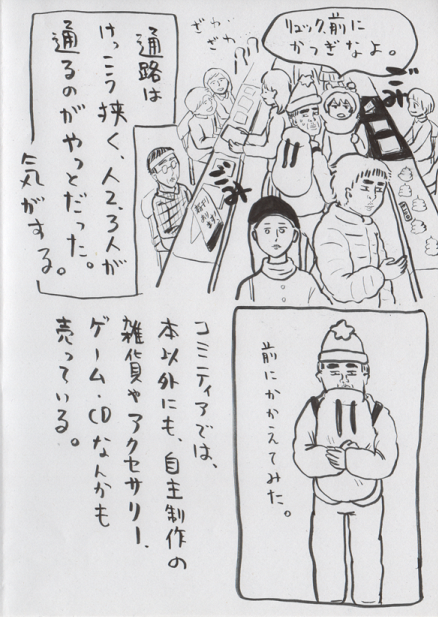 リュック、前に
かつぎなよ。
ごみ
ざわ
ざわ
ごみ
通路は
けっこう狭く、人2、3人が
通るのがやっとだった。
気がする。
前にかかえてみた。
コミニティアでは、
本以外にも、自主制作の
雑貨やアクセサリー、
ゲーム・CDなんかも
売っている。